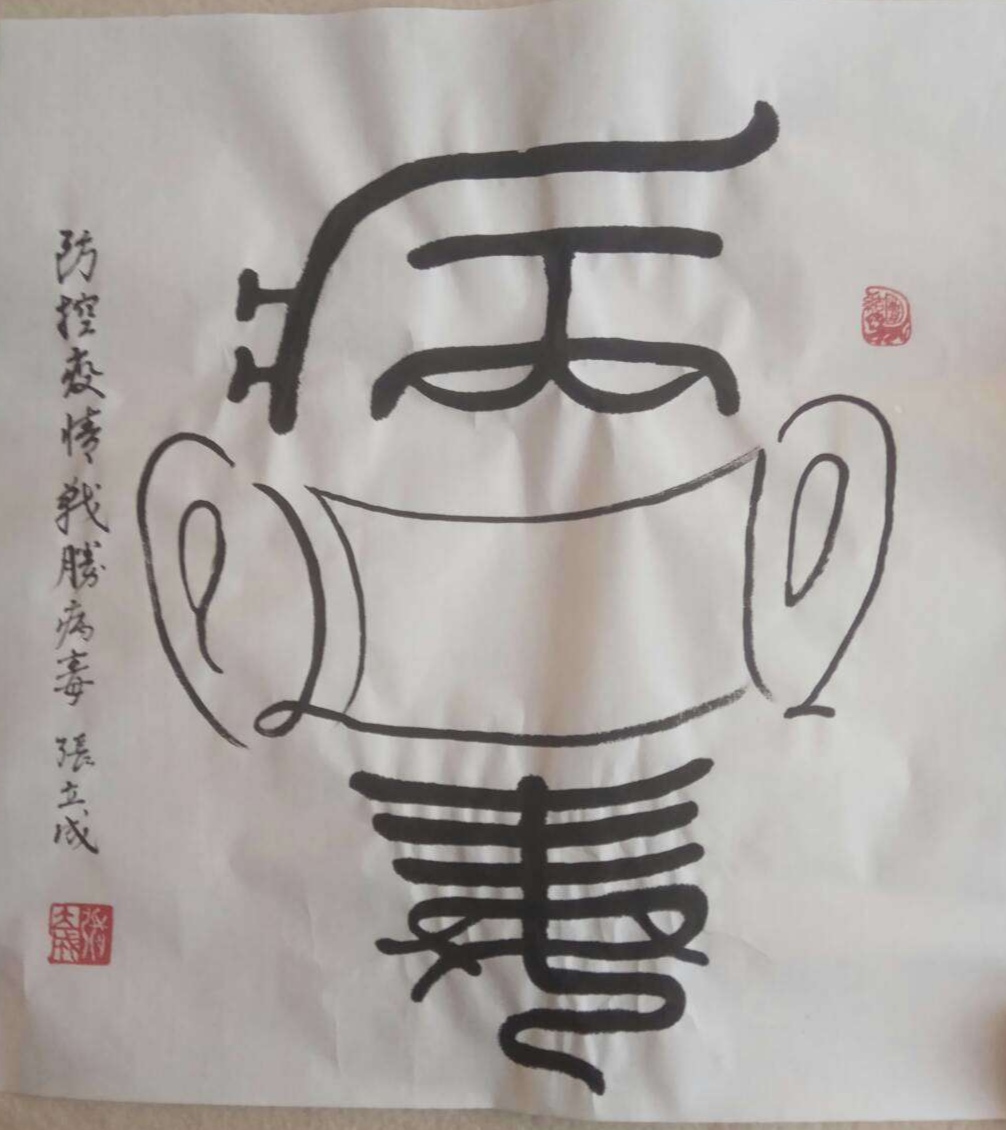 病毒
防控疫情战勝病毒 張立成